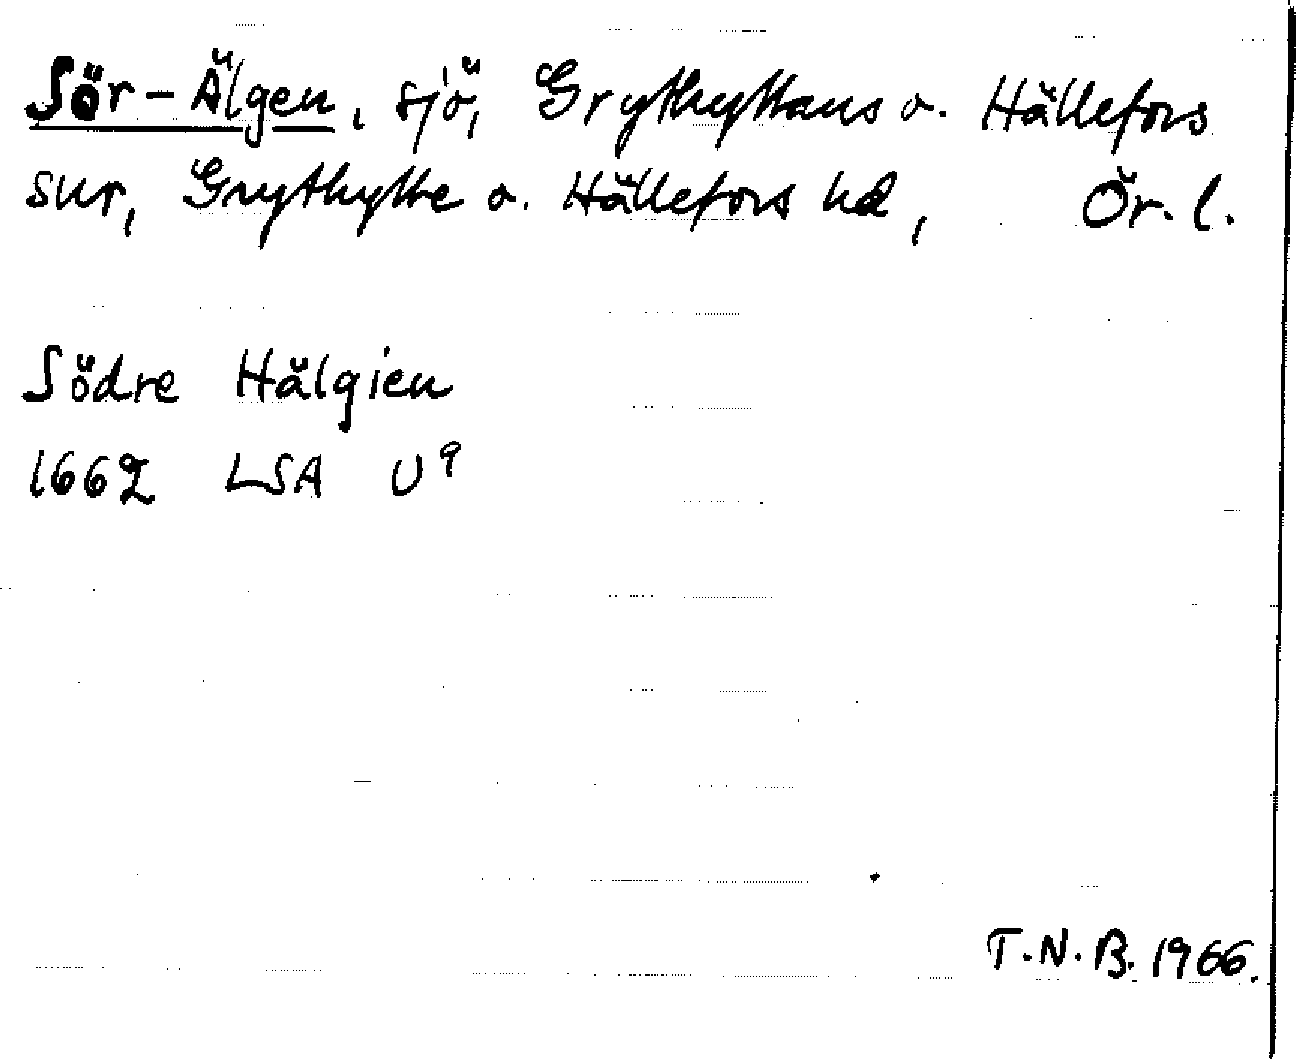 Sör-Älgen, sjö, Grythyttans o. Hällefors
snr, Grythytte o. Hällefors hd, Ör. l.
Södre Hälgien
1662 LSA U⁹
T.N.B. 1966.